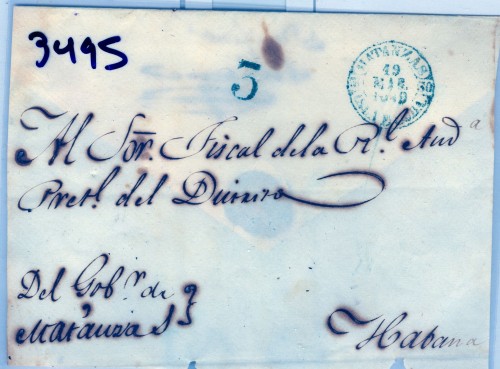 3495
5
MATANZAS
19
MAR
1849
Al Sor. Fiscal de la Rl. Auda
Pretl. del Distrito
Del Gobr. de
Matanzas
Habana